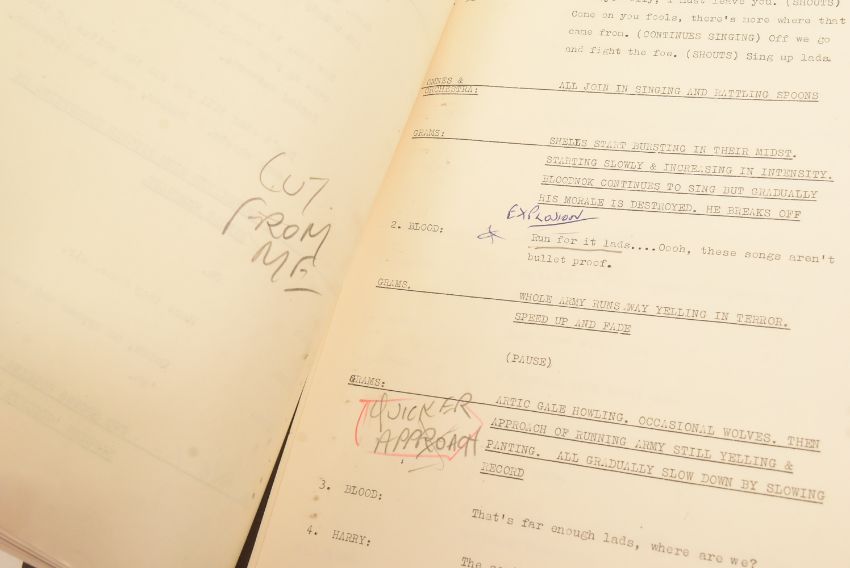 I must leave you. (SHOUTS)
Come on you fools, there's more where that
came from. (CONTINUES SINGING) Off we go
and fight the foe. (SHOUTS) Sing up lads.
OMNES &
ORCHESTRA: ALL JOIN IN SINGING AND RATTLING SPOONS
GRAMS: SHELLS START BURSTING IN THEIR MIDST.
STARTING SLOWLY & INCREASING IN INTENSITY.
BLOODNOK CONTINUES TO SING BUT GRADUALLY
HIS MORALE IS DESTROYED. HE BREAKS OFF
CUT.
FROM
ME
EXPLOSION
2. BLOOD: Run for it lads....Oooh, these songs aren't
bullet proof.
GRAMS. WHOLE ARMY RUNS AWAY YELLING IN TERROR.
SPEED UP AND FADE
(PAUSE)
GRAMS: ARTIC GALE HOWLING. OCCASIONAL WOLVES. THEN
APPROACH OF RUNNING ARMY STILL YELLING &
PANTING. ALL GRADUALLY SLOW DOWN BY SLOWING
RECORD
QUICKER
APPROACH
3. BLOOD: That's far enough lads, where are we?
4. HARRY: The